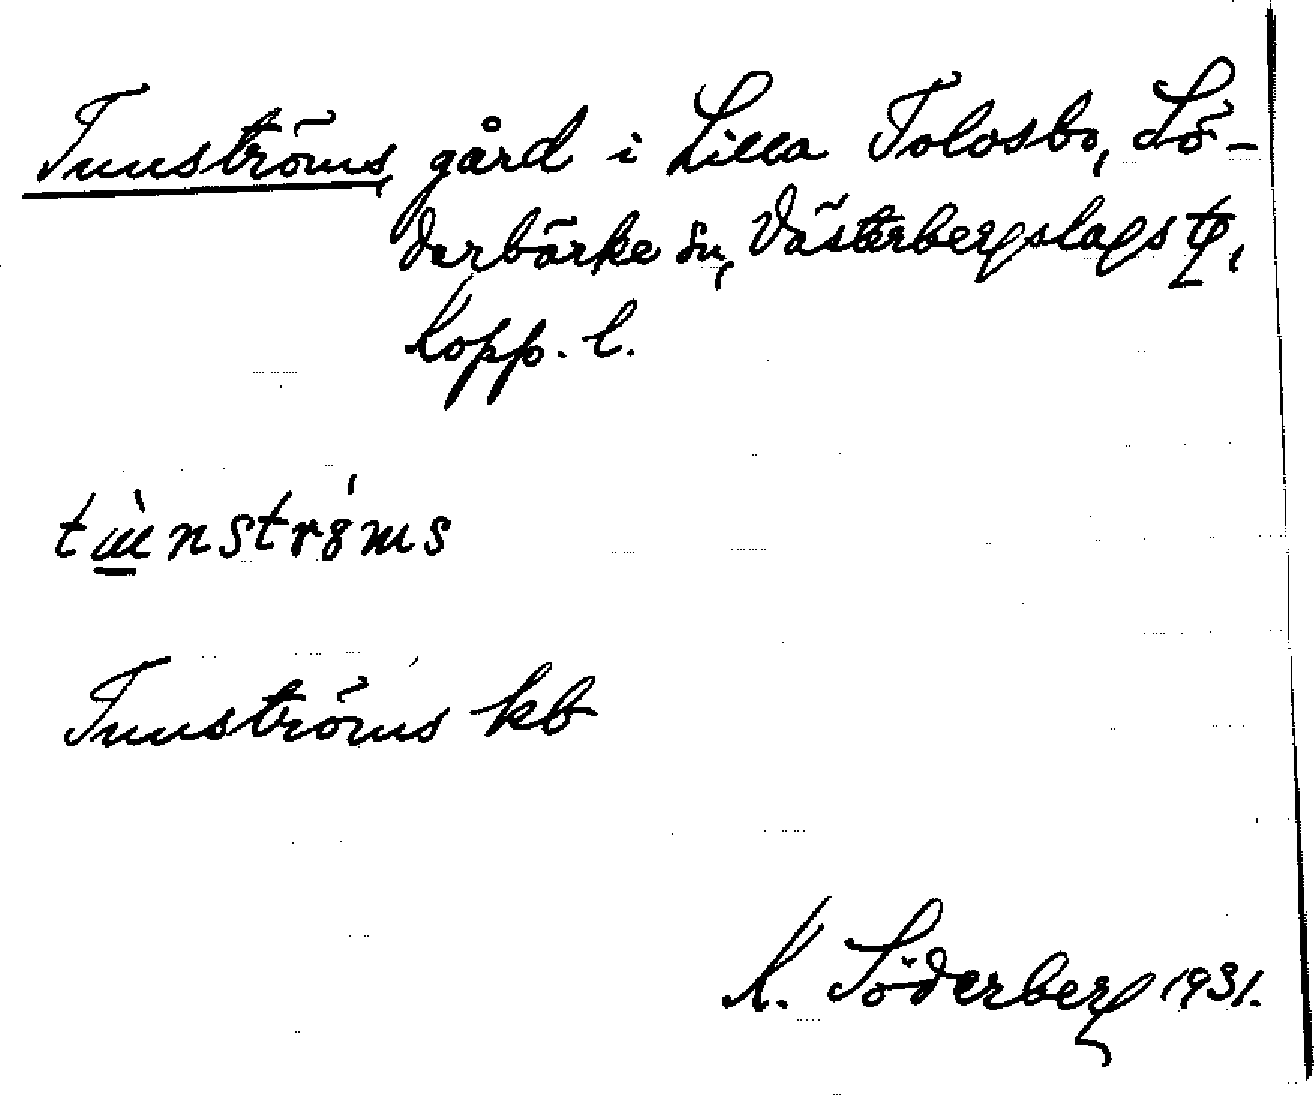 Tunströms, gård i Lilla Tolosbo, Sö-
derbärke sn, Västerbergslags tg,
Kopp. l.
tùnstrøms
Tunströms kb
K. Söderberg 1931.